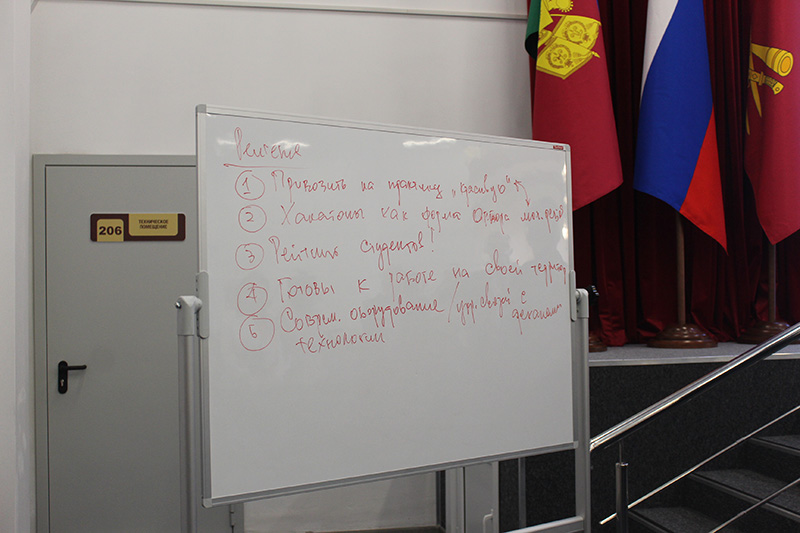 Решение
① Привозить на практику „красивую"
② Хакатоны как форма отбора мол. 
③ Рейтинг студентов!
④ Готовы к работе на своей территор
⑤ Соврем. оборудование / упр. связей с
технологии деканами
206
ТЕХНИЧЕСКОЕ
ПОМЕЩЕНИЕ